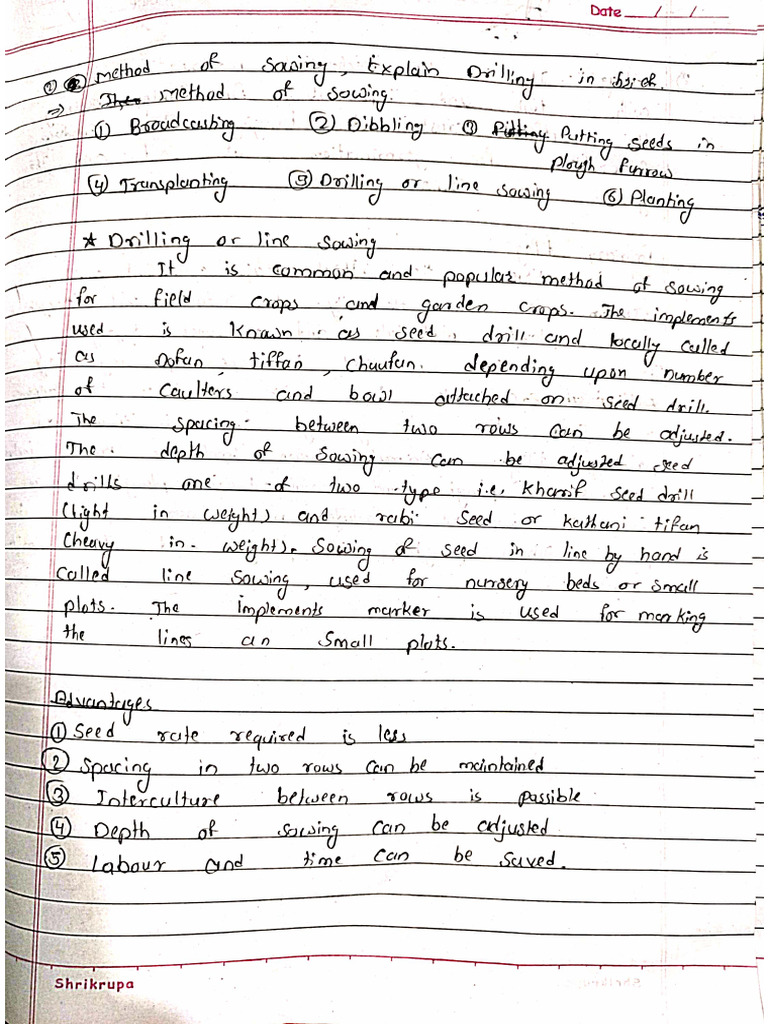 Date / /
② Method of Sowing, Explain Drilling in
⇒ Method of Sowing.
① Broadcasting ② Dibbling ③ Putting seeds in
plough furrow
④ Transplanting ⑤ Drilling or line sowing ⑥ Planting
* Drilling or line sowing
It is common and popular method of sowing
for field crops and garden crops. The implements
used is known as seed drill and locally called
as Dofan, tiffan, chaufan. depending upon number
of Caulters and bowl attached on seed drill.
The spacing between two rows can be adjusted.
The depth of sowing can be adjusted seed
drills are of two type i.e, kharif seed drill
(light in weight) and rabi seed or kathani tifan
(heavy in weight). Sowing of seed in line by hand is
called line sowing, used for nursery beds or small
plots. The implements marker is used for marking
the lines an small plots.
Advantages
① Seed rate required is less
② Spacing in two rows can be maintained
③ Interculture between rows is passible
④ Depth of sowing can be adjusted
⑤ Labour and time can be saved.
Shrikrupa